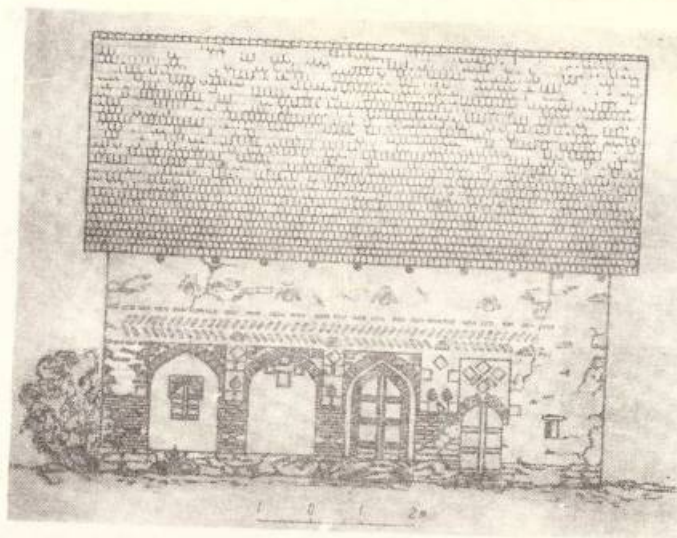 1 0 1 2m